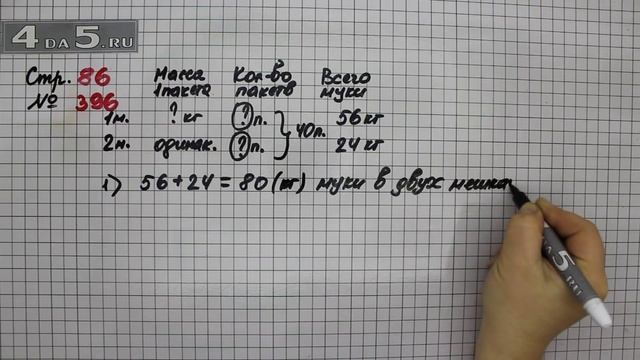 4DA5.RU
Стр. 86
№ 396
Масса 1 пакета Кол-во пакетв Всего муки
1м. ? кг ? п. 56 кг
40п.
2м. одинак. ? п. 24 кг
1) 56+24=80 (кг) муки в двух мешка
5.RU